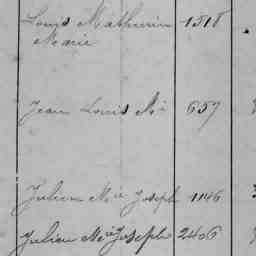 Louis Mathurin 1518
Marie
Jean Louis Mie 657
Julien Mie Joseph 1146
Julien Mie Joseph 2406